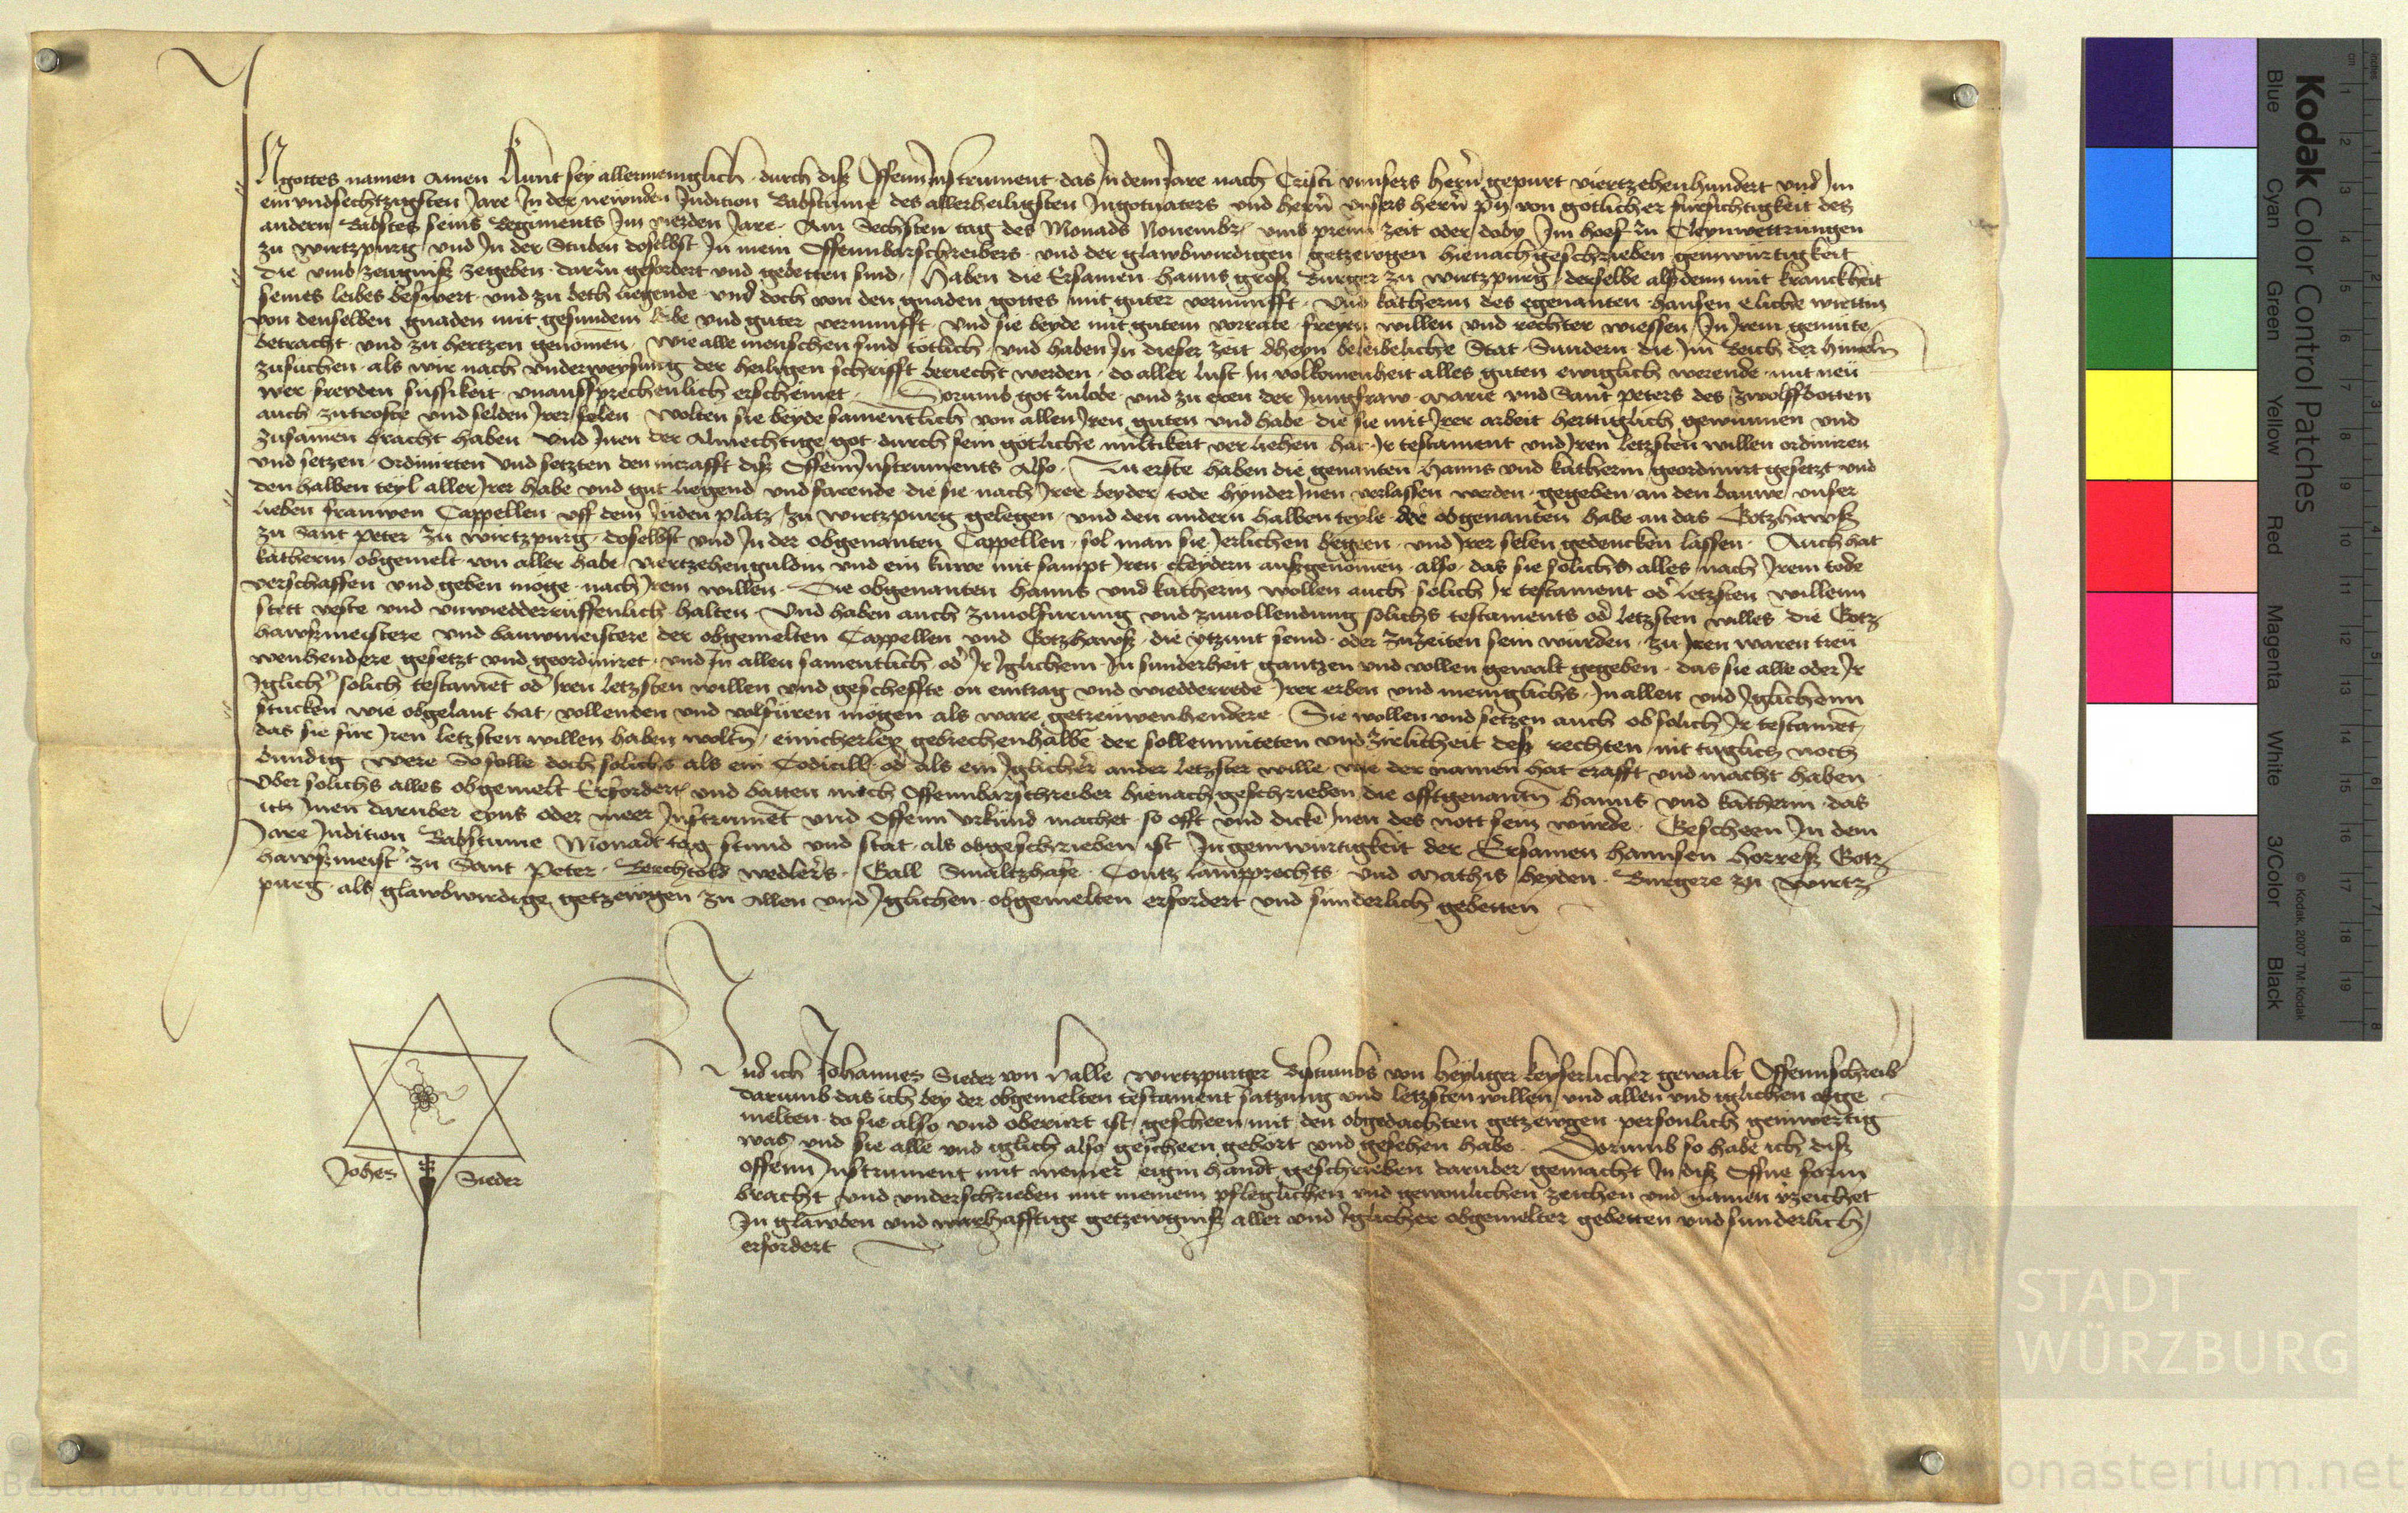 IN gottes namen amen Kunt sey allermeniglich durch disz Offenn Instrument das In dem Jare nach Cristi unnsers hern gepurt viertzehenhundert und Im
einundsechtzigsten Jare In der newnden Indition Babstume des allerheiligsten Ingotuaters und hern unsers hern pij von gotlicher fursichtigkeit des
andern Babstes seins Regiments Im vierden Jare Am Sechsten tag des Monads Nouembr umb preim zeit oder doby Im hoef zu Cleynwettrungen
zu wirtzpurg und In der Stuben doselbst In mein Offennbarschreibers und der glawbwirdigen getzewgen hienachgeschrieben geinwurtigkeit
die umb zeugnisz zegeben darin gefordert und gebetten sind Haben die Ersamen Hanns grosz Burger zu wirtzpurg derselbe alszdenn mit kranckheit
seines leibes beswert und zu beth liegende und doch von den gnaden gottes mit guter vernunfft Und katherin des egenanten hansen eliche wirttin
von denselben gnaden mit gesundem leibe und guter vernunfft und sie beyde mit gutem vorrate freyem willen und rechter wiessen In Irem gemute
betracht und zu hertzen genomen wie alle menschen sind totlich und haben In dieser zeit dheyn beleibeliche Stat Sundern die Im Reich der himeln
zusuchen als wir nach underweysung der heiligen schrifft bericht werden do aller lust In volkomenheit alles guten ewiglich werende mit neu
wer freyden sussikeit unauszsprechenlich erscheinet Dorumb got zulobe und zu eren der Jungfraw Marie und Sant peters des zwolffbotten
auch zutroste und selden Irer selen wolten sie beyde samentlich von allen Iren guten und habe die sie mit Irer arbeit herttiglich gewunnen und
zusamen bracht haben Und Inen der Almechtige got durch sein gotliche miltikeit verliehen hat Ir testament und Iren letzsten willen ordiniren
und setzen Ordinirten und setzten den incrafft disz Offenn Instruments Also Zu erste haben die genanten Hanns und katherin geordinirt gesetzt und
den halben teyl aller Irer habe und gut liegend und farende die sie nach Irer beyder tode hynder Inen verlassen werden gegeben an den bauwe unser
lieben frauwen Cappellen uff dem Juden platz zu wirtzpurg gelegen und den andern halben teyle der obgenanten habe an das Gotzhawsz
zu Sant peter zu wirtzpurg doselbst und In der obgenanten Cappellen sol man sie Jerlichen begeen und Irer selen gedencken lassen Auch hat
katherin obgemelt von aller habe viertzehen guldin und ein kuwe mit sampt Iren cleydern auszgenomen also das sie solichs alles nach Irem tode
verschaffen und geben moge nach Irem willen Die obgenanten Hanns und katherin wollen auch solich Ir testament od letzsten willenn
stett veste und unwiedderruffenlich halten Und haben auch zuuolfurung und zuuollendung solichs testaments od letzsten willes die Gotz
hawszmeistere und bauwmeistere der obgemelten Cappellen und Gotzhawsz die ytzunt seind oder zuzeiten sein wurden zu Iren waren treu
wenhendere gesetzt und geordiniret und In allen samentlich od Ir Iglichem In sunderheit gantzen und vollen gewalt gegeben das sie alle oder Ir
Iglicher solich testament od Iren letzsten willen und gescheffte on eintrag und wiedderrede Irer erben und meniglichs In allen und Iglichenn
stucken wie obgelaut hat vollenden und volfuren mogen als ware getreuwenhendere Sie wollen und setzen auch ob solich Ir testament
das sie fur Iren letzsten willen haben woltn einicherley gebrechenhalbe der sollemniteten und zirlicheit desz rechten nit tuglich noch
bundig were So solle doch solichs als ein Codicill od als ein Iglicher ander letzster wille wie der namen hat crafft und macht haben
Uber solichs alles obgemelt Erfordert und batten mich Offennbarschreiber hienach geschrieben die offtgenantn Hanns und katherin das
ich Inen daruber eyns oder meer Instrument und Offenn urkund machet so offt und dicke Inen des nott sein wurde Gescheen In dem
Jare Indition Babstume Monadt tag stund und stat als obgeschrieben ist In geinwurtigkeit der Ersamen hannsen horresz Gotz
hawszmeister zu Sant Peter Brechtold wedlers Gall Smaltzhafe Contz lampprechts und Mathis heyden Burgere zu wirtz
purg als glawbwirdige getzewgen zu allen und Iglichen obgemelten erfordert und sunderlich gebetten
Und ich Johannes Sieder von Halle wirtzpurger Bistumbs von heyliger keyserlicher gewalt Offennschreib
darumb das ich bey der obgemelten testament satzung und letzsten willen und allen und iglichen obge
melten do sie also und oberurt ist gescheen mit den obgedachten getzewgen personlich geinwertig
was und sie alle und iglich also gescheen gehort und gesehen habe Dorumb so habe ich disz
offenn Instrument mit meiner eigin handt geschrieben daruber gemacht In disz Offne form
bracht und underschrieben mit meinem pfleglichen und gewonlichen zeichen und namen vzeichet
In glawben und warhafftige getzewgnisz aller und Iglicher obgemelter gebetten und sunderlich
erfordert
Johes Sieder
Kodak Color Control Patches
Blue Cyan Green Yellow Red Magenta White 3/Color Black
© Kodak, 2007 TM: Kodak
cm 1 2 3 4 5 6 7 8 9 10 11 12 13 14 15 16 17 18 19
inches 1 2 3 4 5 6 7 8
STADT
WÜRZBURG
Bestand Würzburger Ratsurkunden
monasterium.net